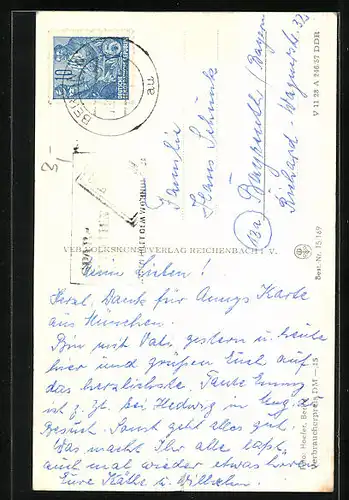 Meine Lieben!
Herzl. Dank für Annys Karte
aus München.
Bin mit Vati gestern u. heute
hier und grüßen Euch auf
das herzlichste. Tante Emmy
ist z. Zt. bei Hedwig in
Besuch. Sonst geht alles gut.
Was macht Ihr alle, laßt
auch mal wieder etwas hören
Eure Käthe u. Willchen.
Familie
Hans Schunk
Bayreuth / Bayern
Richard-Wagnerstr. 32
VEB VOLKSKUNSTVERLAG REICHENBACH I. V.
V 11 28 A 846/57 DDR
Best.-Nr. 15/169
Foto: Hoefer, Berlin
Verbraucherpreis DM —,15
10
3,-